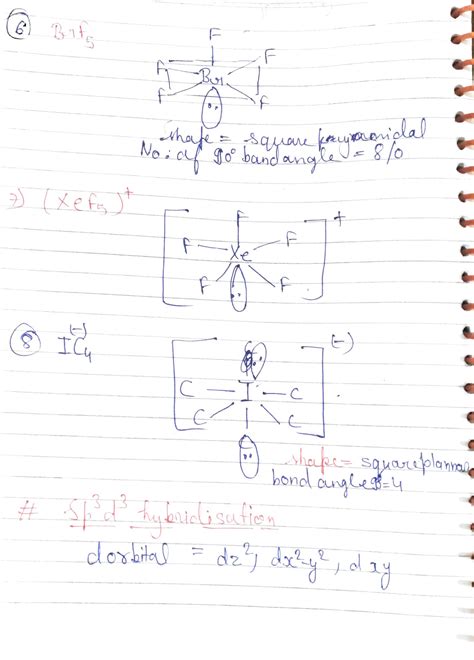 6 BrF5
F
F F
Br
F F
shape = square pyramidal
No: of 90° band angle = 8/0
7) (XeF5)+
F +
F Xe F
F F
8 IC4 (-)
(-)
C I C
C C
shape = square plannar
bond angle 90=4
# Sp3d3 hybridisation
d orbital = dz2, dx2-y2, dxy